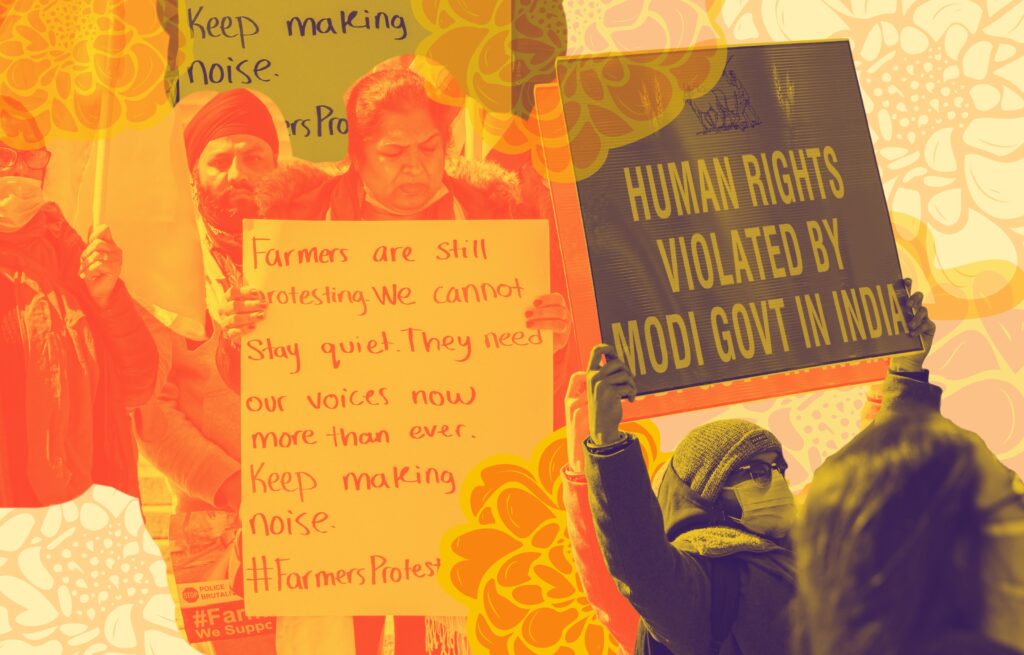 Keep making
noise.
ersPro
Farmers are still
rotesting. We cannot
Stay quiet. They need
our voices now
more than ever.
Keep making
noise.
#FarmersProtest
HUMAN RIGHTS
VIOLATED BY
MODI GOVT IN INDIA
STOP POLICE
BRUTALI
#Far
We Suppo